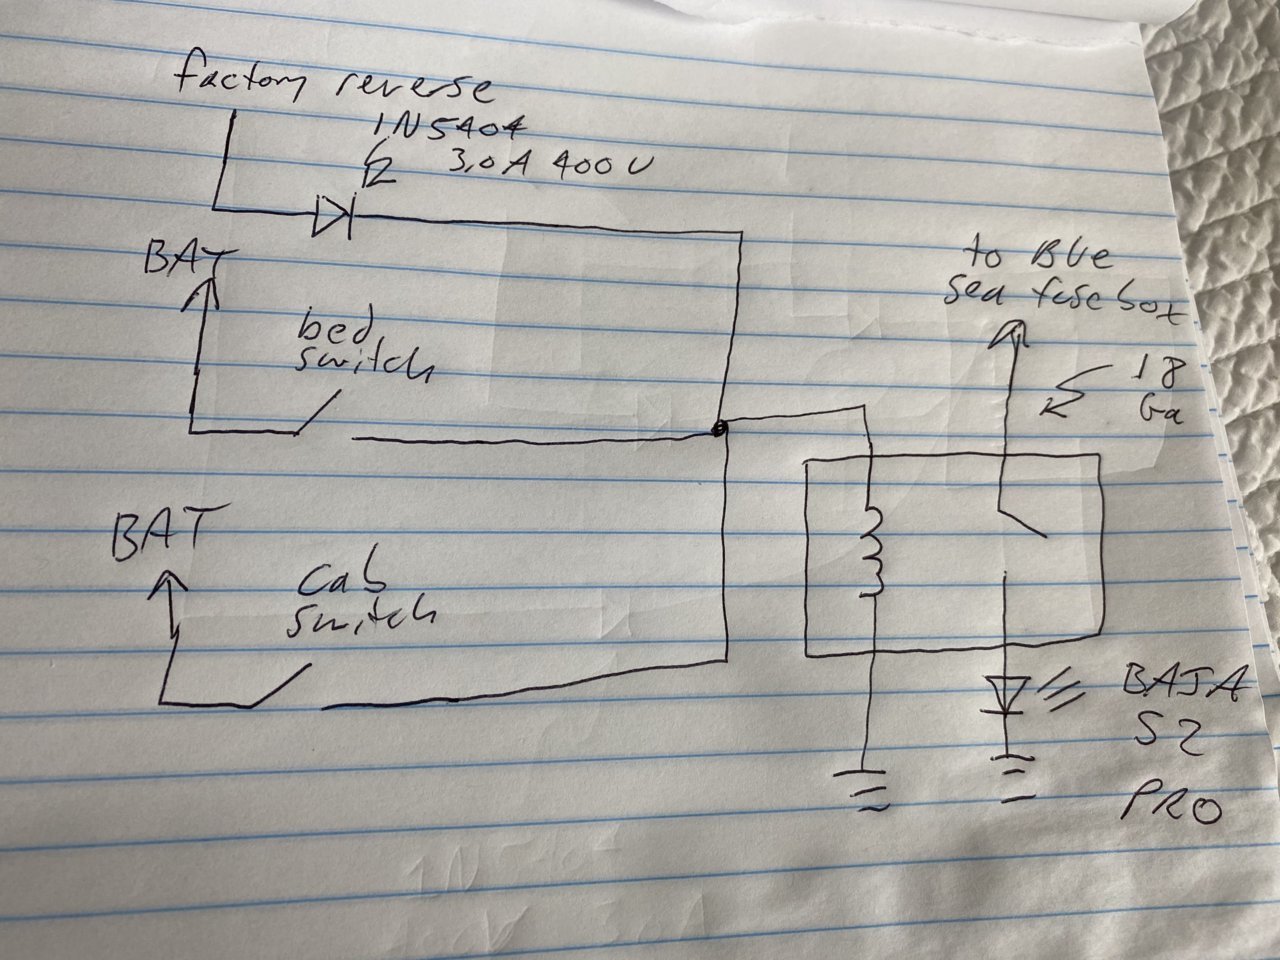 factory reverse
1N5404
3.0A 400V
BAT
bed
switch
to Blue
sea fuse box
18
Ga
BAT
Cab
switch
BAJA
S2
PRO